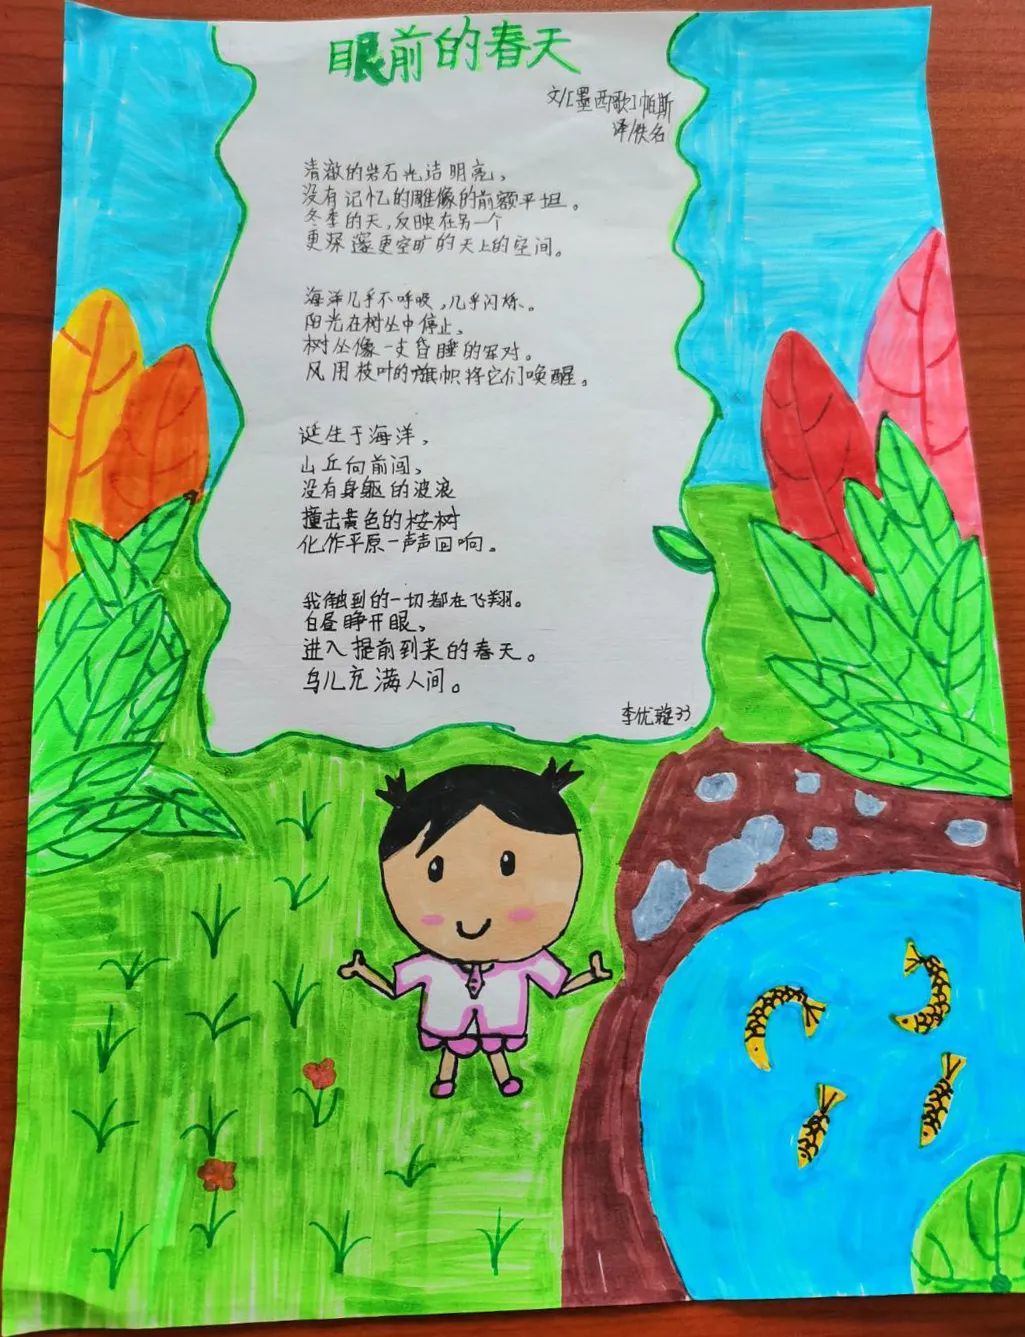 眼前的春天
文/[墨西歌]帕斯
译/佚名
清澈的岩石光洁明亮，
没有记忆的雕像的前额平坦。
冬季的天，反映在另一个
更深邃更空旷的天上的空间。
海洋几乎不呼吸，几乎闪烁。
阳光在树丛中停止，
树丛像一支昏睡的军队。
风用枝叶的旗帜将它们唤醒。
诞生于海洋，
山丘向前闯，
没有身躯的波浪
撞击黄色的桉树
化作平原一声声回响。
我触到的一切都在飞翔。
白昼睁开眼，
进入提前到来的春天。
鸟儿充满人间。
李优璇33